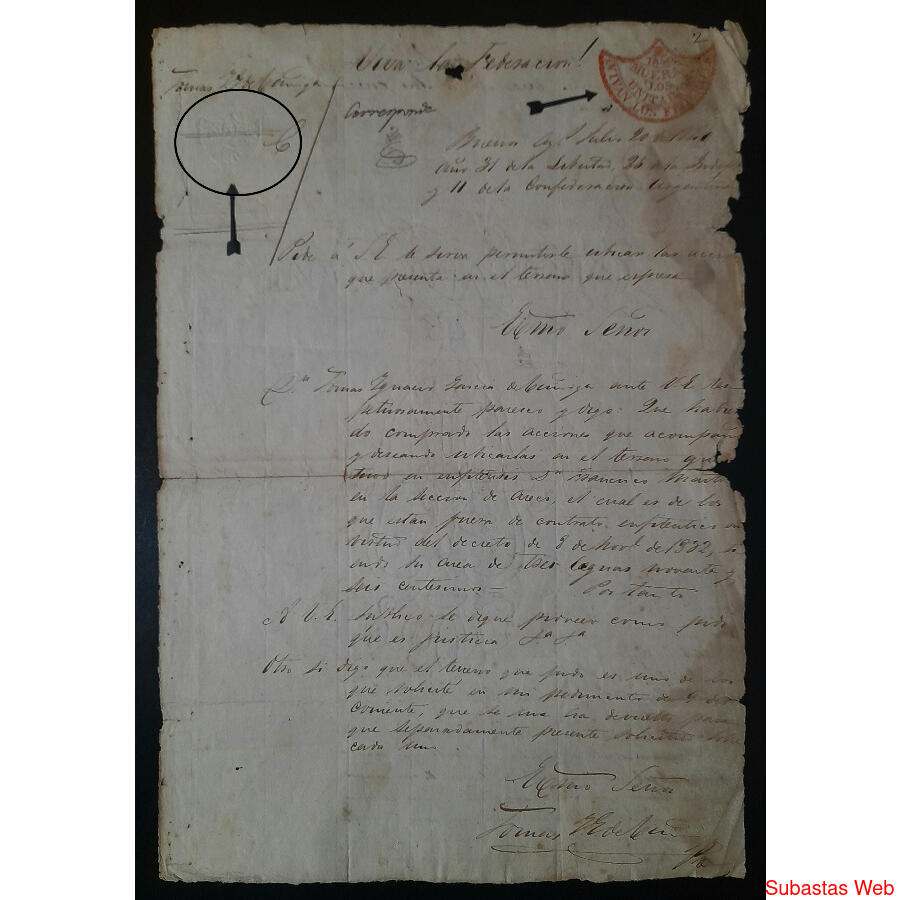 Viva la Federacion!
2
MUERAN
LOS
Tomas
Corresponde
Buenos Ay.s Julio 20 de
año 31 de la Libertad, 25 de la Indep
y 11 de la Confederacion Argentina
Pide á S.E. le sirva permitirle ubicar las accio
que presenta en el terreno que expresa
Exmo Señor
D.n Tomas Ignacio Garcia de Zuñiga ante V.E. res-
petuosamente paresco y digo: Que habien
do comprado las acciones que acompaño
y deseando ubicarlas en el terreno que
tuvo en enfiteusis D.n Francisco
en la seccion de Areco, el cual es de los
que están fuera de contrato enfiteutico en
virtud del decreto de 3 de Nov.e de 1832, si
endo su area de tres leguas noventa y
seis centesimos = Por tanto
A V.E. suplico se digne proveer como pido
que es justicia
Otro si digo que el terreno que pido es uno de los
que solicité en mi pedimento de 9 del
Corriente, que se me ha devuelto para
que separadamente presente solicitud
cada uno.
Exmo Señor
Tomas
Subastas Web